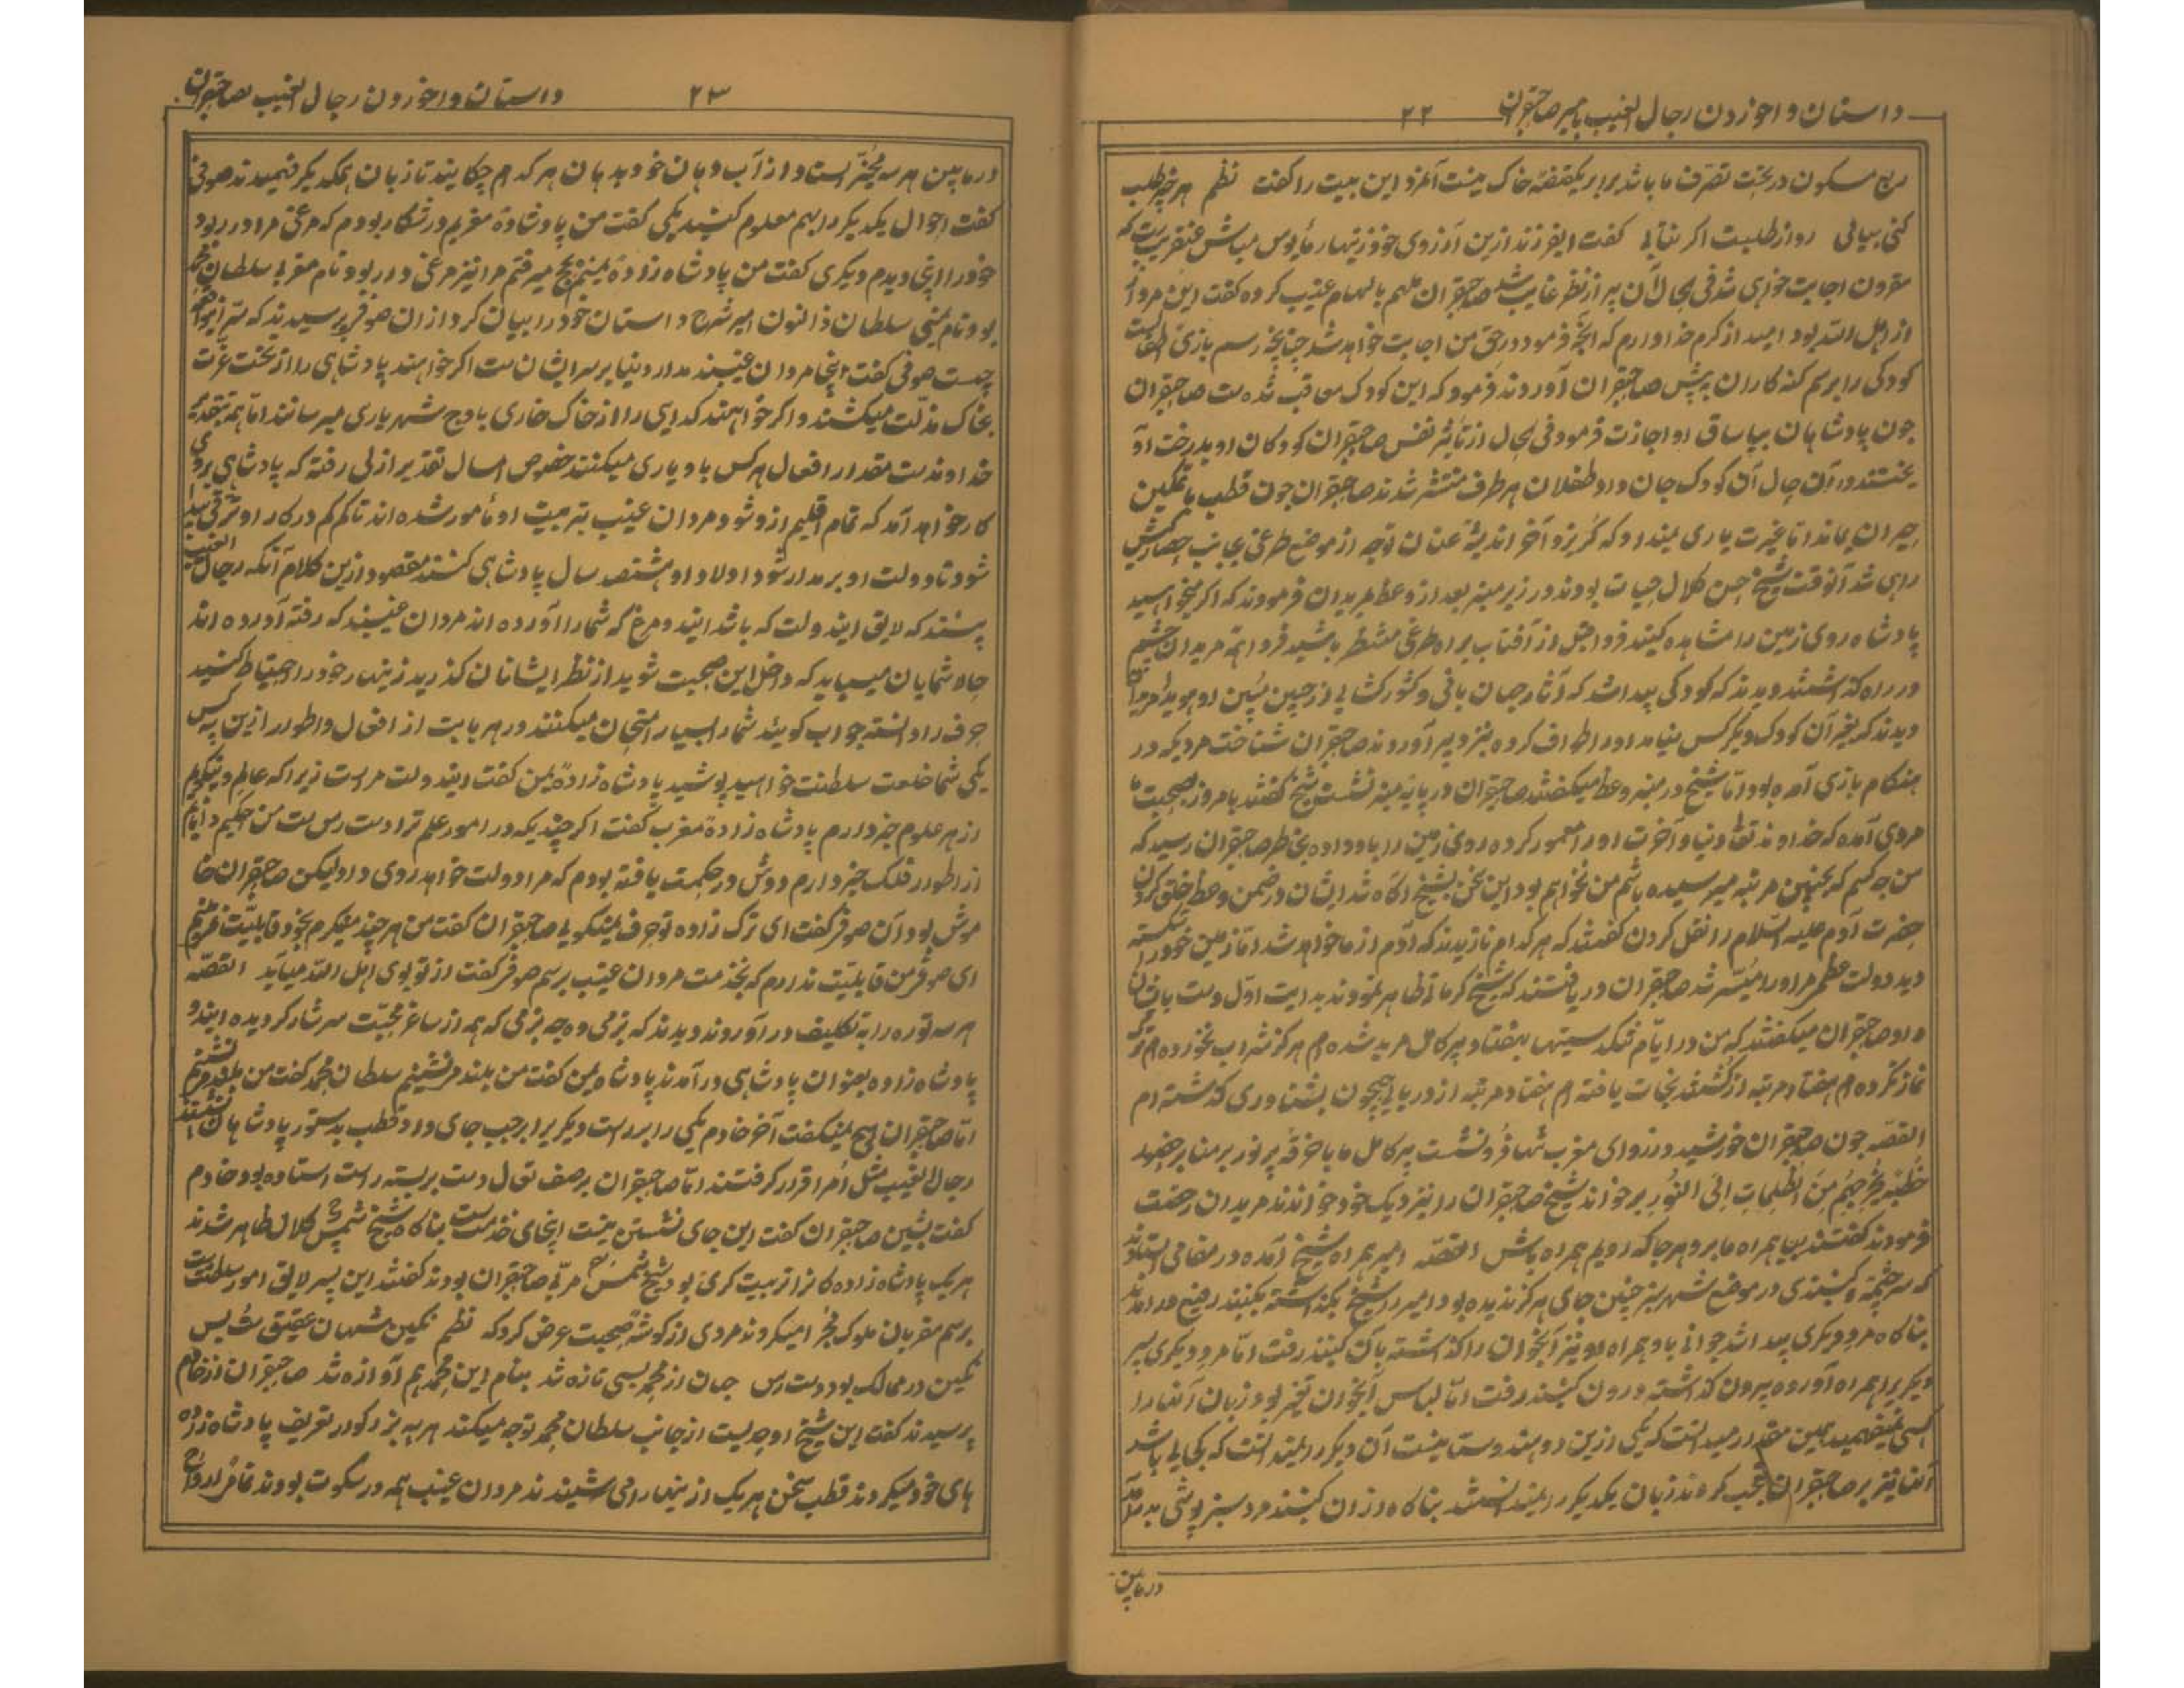 داستان واخوردن رجال الغیب بامیر صاحبقران ۲۲
ربع مسکون در تحت تصرف ما باشد برابر یکقبضه خاک نیست آنمرد این بیت را گفت نظم هر چه طلب
کنی بیابی رواز طلبیت اگر نتابی گفت ایفرزند ازین آرزوی خود زینهار مأیوس مباش عنقریبست که
مقرون اجابت خواهی شد فی الحال آن پیر از نظر غایب شد صاحبقران ملهم بالهام غیب کرده گفت این مرد از
از اهل الله بود امید از کرم خدا دارم که آنچه فرمود در حق من اجابت خواهد شد چنانچه رسم بازی اطفالست
کودکی را برسم گنه کاران به پیش صاحبقران آوردند فرمود که این کودک معاقب شده ست صاحبقران
چون پادشاهان بیاساق او اجازت فرمود فی الحال از تأثیر نفس صاحبقران کودکان او بدرخت آو
یختند در آن حال آن کودک جان داد طفلان هر طرف منتشر شدند صاحبقران چون قطب با تمکین
حیران بماند اما غیرت یاری نمیداد که گریزد آخر اندیشه عنان توجه از موضع طرغی بجانب حصارکش
راهی شد آنوقت شیخ حسن کلال حیات بودند در زیر منبر بعد از وعظ مریدان فرمودند که اگر میخواهید
پادشاه روی زمین را مشاهده کنید فردا قبل از آفتاب براه طرغی منتظر باشید فردا همه مریدان چشم
در راه گذاشتند دیدند که کودکی پیدا شد که آثار جهان بانی و کشورکشایی از جبین مبین او هویدا مریدان
دیدند که بغیر آن کودک دیگر کس نیامد او را طواف کرده بنزد پیر آوردند صاحبقران شناخت مردیکه در
هنگام بازی آمده بود اما شیخ در منبر وعظ میگفتند صاحبقران در پایه منبر نشست شیخ گفتند بامروز بصحبت ما
مردی آمده که خداوند تعالی دنیا و آخرت او را معمور کرده روی زمین را باو داده بخاطر صاحبقران رسید که
من چه کسم که بچنین مرتبه میرسیده باشم من نخواهم بود این سخن بشیخ آگاه شد ایشان در ضمن وعظ خلق کردن
حضرت آدم علیه السلام را نقل کردن گفتند که هر کدام نازیدند که آدم از ما خواهد شد اما زمین خود را شکسته
دید دولت عظیم مر او را میسر شد صاحبقران دریافتند که شیخ کرماتی ظاهر نمودند بدایت اول دست بایشان
داد صاحبقران میگفتند که من در ایام فلک سیتها بهفتاد پیر کامل مرید شده ام هرگز شراب نخورده ام ترک
نماز نکرده ام هفتاد مرتبه از کشتن نجات یافته ام هفتاد مرتبه از دریای جیحون بشناوری گذشته ام
القصه چون صاحبقران خورشید در زوای مغرب تنها فرو نشست پیر کامل ماه با خرقه پر نور بر منابر حضور
خطبه یخرجهم من الظلمات الی النور بر خواند شیخ صاحبقران را بنزدیک خود خواندند مریدان رخصت
فرمودند گفتند بیا همراه ما برو هر جا که رویم همراه باش القصه امیر همراه شیخ آمده در مقامی ایستادند
که سرچشمه و گنبدی در موضع شهر سبز چنین جای هرگز ندیده بود امیر را شیخ بگذاشته بگنبد رفیع درآمدند
بناگاه مرد دیگری پیدا شد جوانی با و همراه او نیز آنجوان را گذاشته بآن گنبد رفت اما مرد دیگری پسر
دیگریرا همراه آورده بیرون گذاشته درون گنبد رفت اما لباس آنجوان تغیر بود زبان آنها را
کسی نمیفهمید همین مقدار میدانست که یکی ازین دو هندوستانیست آن دیگر را نمیدانست که بکجایی باشد
آنها نیز بر صاحبقران تعجب کردند زبان یکدیگر را نمیدانستند بناگاه از آن گنبد مرد سبز پوشی بدر آمد
درمابین
داستان واخوردن رجال الغیب بصاحبقران ۲۳
درمابین هر سه مخیر است و از آب دهان خود بدهان هر کدام چکانید تا زبان یکدیگر فهمیدند صوفی
گفت احوال یکدیگر را بهم معلوم کنید یکی گفت من پادشاه زاده مغربم در شکار بودم که مرغی مرا در ربود
خود را اینجا دیدم دیگری گفت من پادشاه زاده یمنم بحج میرفتم مرا نیز مرغی در ربود نام مغربی سلطان محمد
بود نام یمنی سلطان ذالنون امیر شرح داستان خود را بیان کرد از آن صوفی پرسیدند که سر این
چیست صوفی گفت اینجا مردان غیبند مدار دنیا بر سر ایشان ست اگر خواهند پادشاهی را از تخت عزت
بخاک مذلت میکشند و اگر خواهند گدایی را از خاک خاری باوج شهریاری میرسانند اما همه بتقدیر
خداوندست مقدار افعال هر کس باو یاری میکنند خصوص امسال تقدیر ازلی رفته که پادشاهی بروی
کار خواهد آمد که تمام اقلیم ازو شود مردان غیب بتربیت او مأمور شده اند تا کم کم در کار او ترقی پیدا
شود تا دولت او بر مدار شود اولاد او هشتصد سال پادشاهی کنند مقصود ازین کلام آنکه رجال الغیب
پسندند که لایق ایندولت که باشد ایند و مرغ که شما را آورده اند مردان غیبند که رفته آورده اند
حالا شمایان میباید که داخل این صحبت شوید از نظر ایشانان گذرید زینهار خود را احتیاط کنید
حرف را دانسته جواب گویید شما را بسیار امتحان میکنند در هر بابت از افعال و اطوار ازین سه کس
یکی شما خلعت سلطنت خواهید پوشید پادشاه زاده یمن گفت ایندولت مراست زیرا که عالم و نیکویم
از هر علوم خبر دارم پادشاه زاده مغرب گفت اگر چندیکه در امور علم ترا دست رس ست من حکیم دانایم
از اطوار فلک خبر دارم دوش در حکمت یافته بودم که مرا دولت خواهد روی داد لیکن صاحبقران خا
موش بود آن صوفی گفت ای ترک زاده تو حرف نمیگویی صاحبقران گفت من هر چند میفکرم بخود قابلیت نمیفهمم
ای صوفی من قابلیت ندارم که بخدمت مردان غیب برسم صوفی گفت از تو بوی اهل الله میآید القصه
هر سه توره را به تکلیف در آوردند دیدند که بزمی وه چه بزمی که همه از ساغر محبت سرشار گردیده ایندو
پادشاه زاده بعنوان پادشاهی در آمدند پادشاه یمن گفت من بلندتر نشینم سلطان محمد گفت من بلندتر نشینم
اما صاحبقران هیچ نمیگفت آخر خادم یکی را براست دیگریرا بر چپ جای داد قطب بدستور پادشاهان نشستند
رجال الغیب مثل امرا قرار گرفتند اما صاحبقران بر صف نعال دست بر بسته راست استاده بود خادم
گفت بشین صاحبقران گفت این جای نشستن نیست اینجای خدمتست بناگاه شیخ شمس کلال ظاهر شدند
هر یک پادشاه زاده گانرا تربیت کری بود شیخ شمس مربی صاحبقران بودند گفتند این پسر لایق امور سلطنت ست
برسم مقربان ملوک مجرا میکردند مردی از گوشه صحبت عرض کرد که نظم نگین شهان عقیق ست بس
نگین در ممالک بود دست رس جهان از محمد بسی تازه شد بنام این محمد هم آوازه شد صاحبقران از خادم
پرسیدند گفت این شیخ اوحدیست از جانب سلطان محمد توجه میکند هر سه بزرگوار تعریف پادشاه زاده
های خود میکردند قطب سخن هر یک ازینها را می شنیدند مردان غیب همه در سکوت بودند